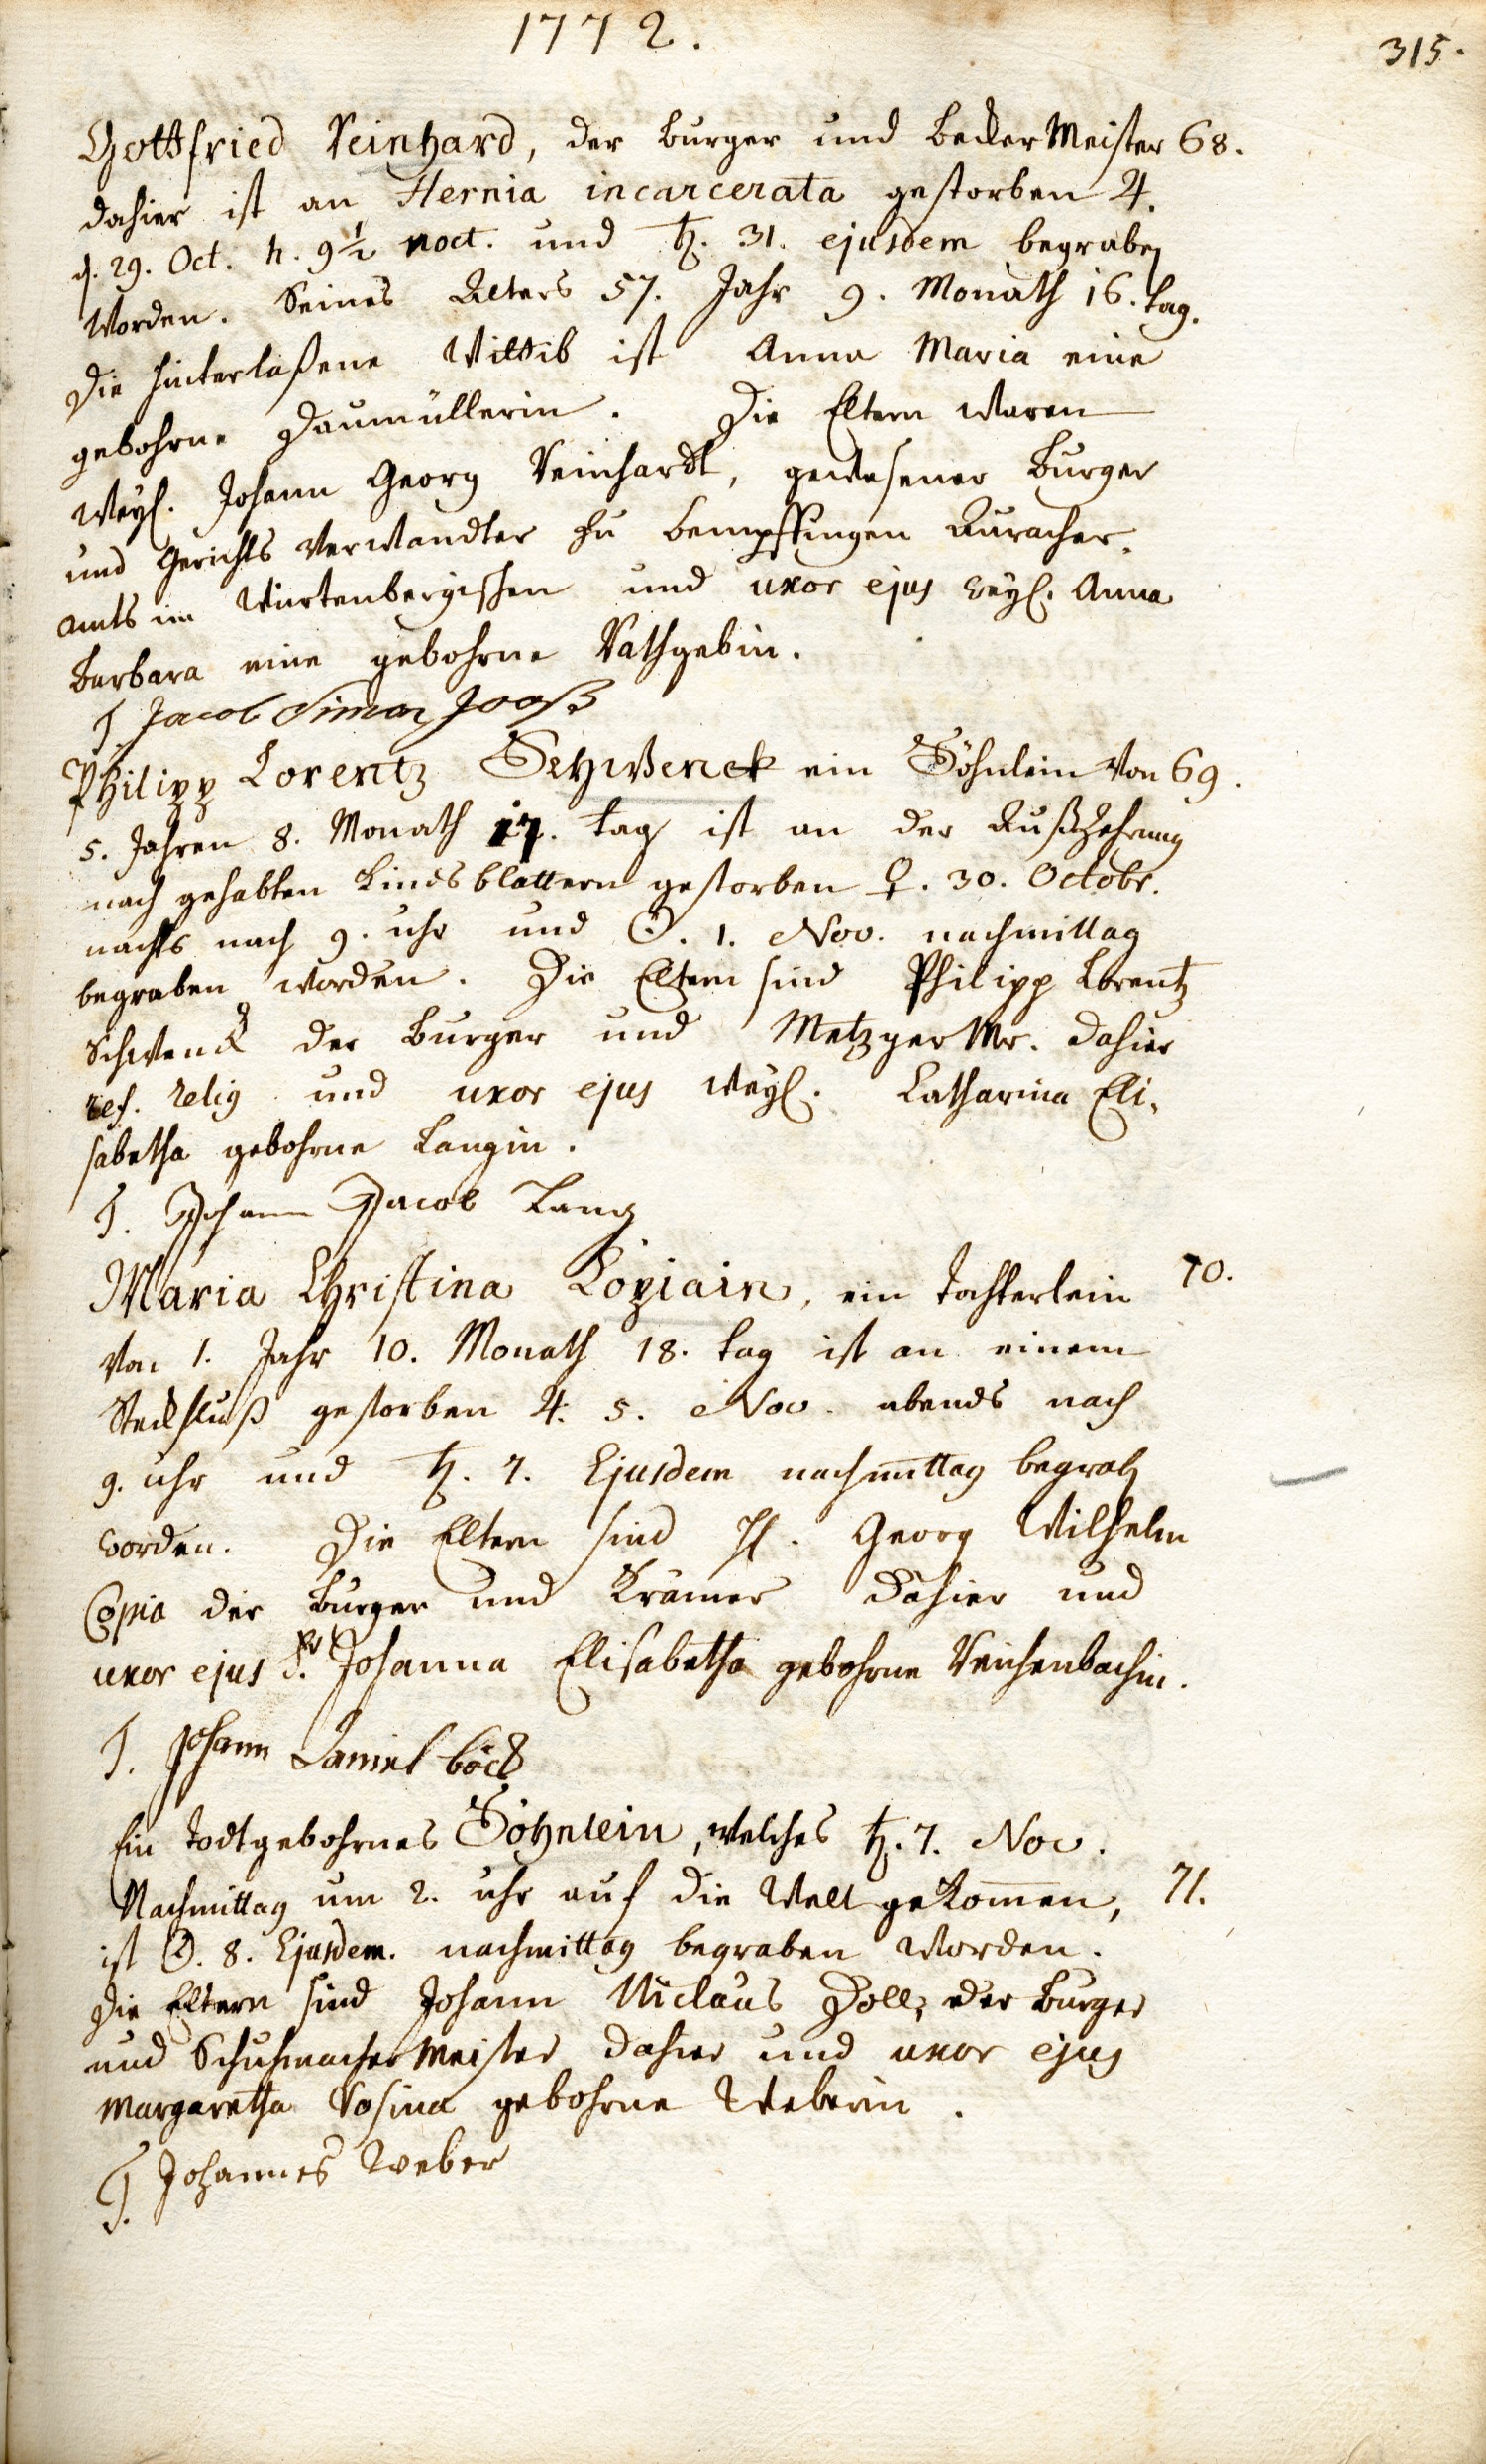 1772.
315.
Gottfried Reinhard, der burger und becker Meister 68.
dahier ist an Hernia incarcerata gestorben ♃.
d. 29. Oct. h. 9½ noct. und ♄. 31. ejusdem begraben
worden. Seines Alters 57. Jahr 9. Monath 16. tag.
Die hinterlaßene Wittib ist Anna Maria eine
gebohrne Daumüllerin. Die Eltern waren
weyl. Johann Georg Reinhardt, gewesener burger
und Gerichts Verwandter zu bempflingen Auracher-
amts im Würtenbergischen und uxor ejus weyl. Anna
barbara eine gebohrne Rathgebin.
T. Jacob Simon Jooß
Philipp Lorentz Schwenck ein Söhnlein von 69.
5. Jahren 8. Monath 17. tag ist an der Außzehrung
nach gehabten Kindsblattern gestorben ♀. 30. Octobr.
nachts nach 9. uhr und ☉. 1. Nov. nachmittag
begraben worden. Die Eltern sind Philipp Lorentz
Schwenck der burger und Metzger Mr. dahier
ref. relig und uxor ejus weyl. Catharina Eli-
sabetha gebohrne Langin.
T. Johann Jacob Lang
Maria Christina Copiain, ein töchterlein 70.
von 1. Jahr 10. Monath 18. tag ist an einem
Steckfluß gestorben ♃. 5. Nov. abends nach
9. uhr und ♄. 7. Ejusdem nachmittag begraben
worden. Die Eltern sind H. Georg Wilhelm
Copia der burger und Krämer dahier und
uxor ejus Fr. Johanna Elisabetha gebohrne Reichenbachin.
T. Johann Daniel böck
Ein todtgebohrnes Söhnlein, welches ♄. 7. Nov.
Nachmittag um 2. uhr auf die Welt gekom̄en, 71.
ist ☉. 8. Ejusdem. nachmittag begraben worden.
Die Eltern sind Johann Niclaus Doll, der burger
und Schuhmacher Meister dahier und uxor ejus
Margaretha Rosina gebohrne Weberin.
T. Johannes Weber